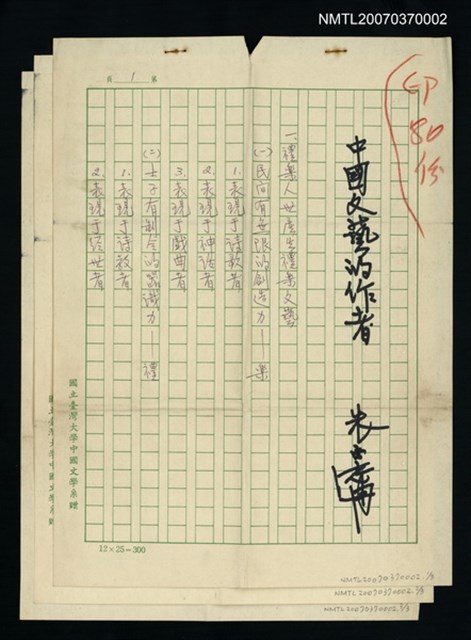 NMTL20070370002
印80份
第 1 頁
中國文藝的作者
一、禮樂人世產生禮樂文藝
(一)民间有無限的創造力——樂
1. 表現于詩歌者
2. 表現于神话者
3. 表現于戲曲者
(二)士子有制全的器識力——禮
1. 表現于詩教者
2. 表現于经世者
國立臺灣大學中國文學系贈
國立臺灣大學中國文學系贈
12×25=300
NMTL20070370002.1/3
NMTL20070370002.2/3
NMTL20070370002.3/3